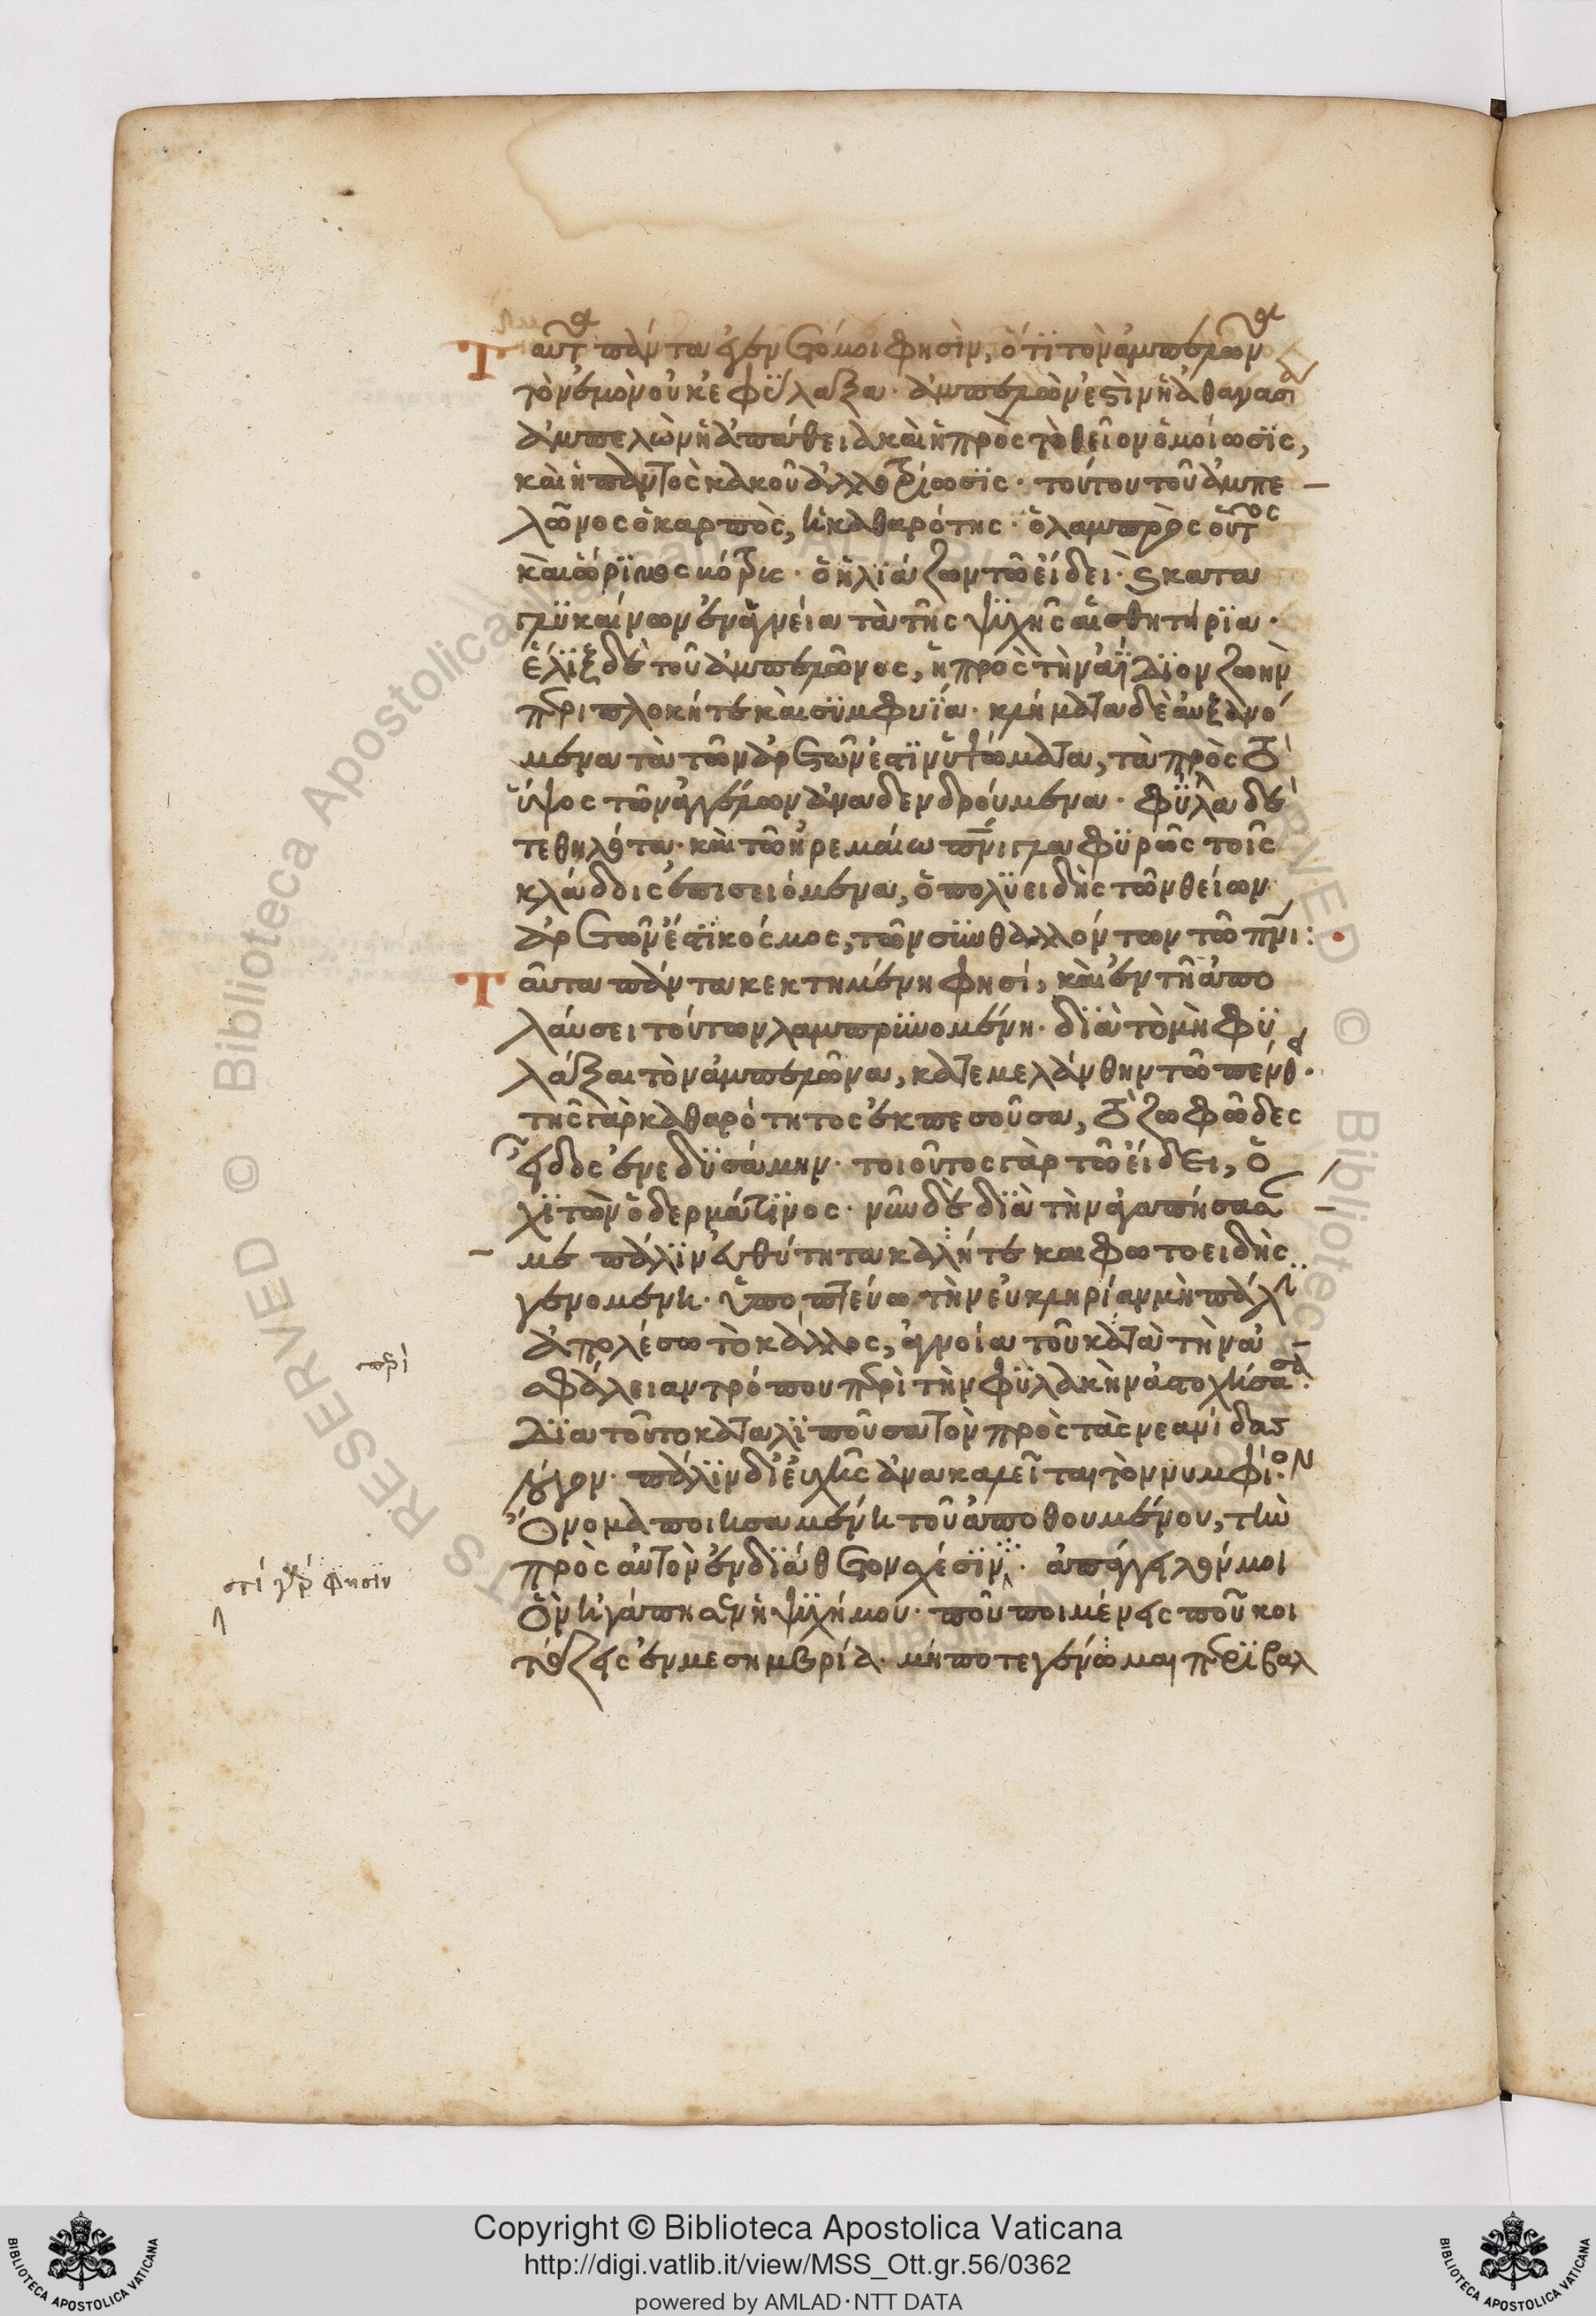 Ταῦτα πάντα ἐγένετό μοι φησὶν, ὅτι τὸν ἀμπελῶνα
τὸν ἐμὸν οὐκ ἐφύλαξα· ἀμπελών ἐστιν ἡ ἀθανασία
ἀμπελὼν ἡ ἀπάθεια καὶ ἡ πρὸς τὸ θεῖον ὁμοίωσις,
καὶ ἡ παντὸς κακοῦ ἀλλοτρίωσις· τούτου τοῦ ἀμπε
λῶνος ὁ καρπὸς, ἡ καθαρότης· ὁ λαμπρὸς οὗτος
καὶ ὥριμος βότρυς· ὁ ἡλιάζων τῷ εἴδει· καὶ κατα
γλυκαίνων ἐν ἁγνείᾳ τὰ τῆς ψυχῆς αἰσθητήρια·
ἕλιξ δὲ τοῦ ἀμπελῶνος, ἡ πρὸς τὴν ἀΐδιον ζωὴν
περιπλοκή τε καὶ συμφυΐα· κλήματα δὲ αὐξανό
μενα τὰ τῶν ἀρετῶν ἐστιν ὑψώματα, τὰ πρὸς τὸ
ὕψος τῶν ἀγγέλων ἀναδενδρούμενα· φύλλα δὲ
τεθηλότα· καὶ τῷ ἠρεμαίῳ πνι γλαφυρῶς τοῖς
κλάδοις ἐπισειόμενα, ὁ πολυειδὴς τῶν θείων
ἀρετῶν ἐστι κόσμος, τῶν συνθαλλόντων τῷ πνι:
Ταῦτα πάντα κεκτημένη φησί, καὶ ἐν τῇ ἀπο
λαύσει τούτων λαμπρυνομένη· διὰ τὸ μὴ φυ
λάξαι τὸν ἀμπελῶνα, κατεμελάνθην τῷ πένθει·
τῆς γὰρ καθαρότητος ἐκπεσοῦσα, τὸ ζοφῶδες
εἶδος ἐνεδυσάμην· τοιοῦτος γὰρ τῷ εἴδει, ὁ
χιτὼν ὁ δερμάτινος· νῦν δὲ διὰ τὴν ἀγαπήσασάν
με πάλιν εὐθύτητα καλή τε καὶ φωτοειδὴς
γενομένη· ὑποπτεύω τὴν εὐκληρίαν μὴ πάλιν
ἀπολέσω τὸ κάλλος, ἀγνοίᾳ τοῦ κατὰ τὴν ἀ
σφάλειαν τρόπου περὶ τὴν φυλακὴν ἀστοχήσασα·
Διὰ τοῦτο καταλιποῦσα τὸν πρὸς τὰς νεανίδας
λόγον· πάλιν δι' εὐχῆς ἀνακαλεῖται τὸν νυμφίον·
Ὄνομα ποιησαμένη τοῦ ἀποθουμένου, τὴν
πρὸς αὐτὸν ἐνδιάθετον σχέσιν· ἀπάγγειλόν μοι
Ὃν ἠγάπησεν ἡ ψυχή μου· ποῦ ποιμένεις ποῦ κοι
τάζεις ἐν μεσημβρίᾳ· μήποτε γένωμαι περιβαλ
περὶ
στί γάρ φησιν
Copyright © Biblioteca Apostolica Vaticana
http://digi.vatlib.it/view/MSS_Ott.gr.56/0362
powered by AMLAD·NTT DATA